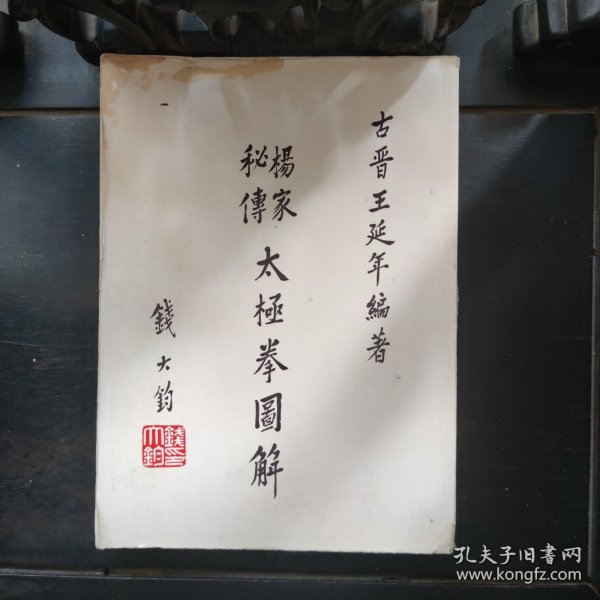 古晋王延年編著
楊家
秘傳
太極拳圖解
錢大鈞
錢大鈞印
孔夫子旧书网
www.kongfz.com